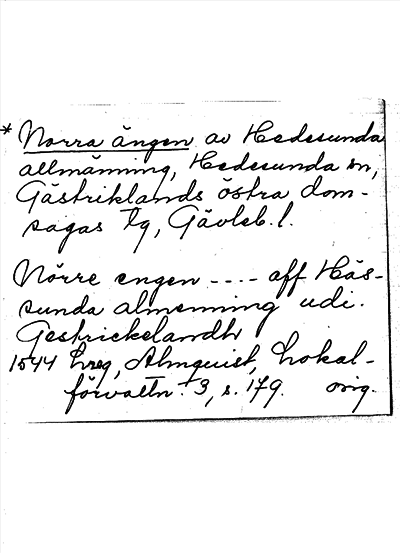 * Norra ängen av Hedesunda
allmänning, Hedesunda sn,
Gästriklands östra dom-
sagas tg, Gävleb. l.
Nörre engen ---- aff Häs-
sunda almenning udi.
Gestrickelandh
1544 hreg, Almquist, Lokal-
förvaltn. 3, s. 179. orig.